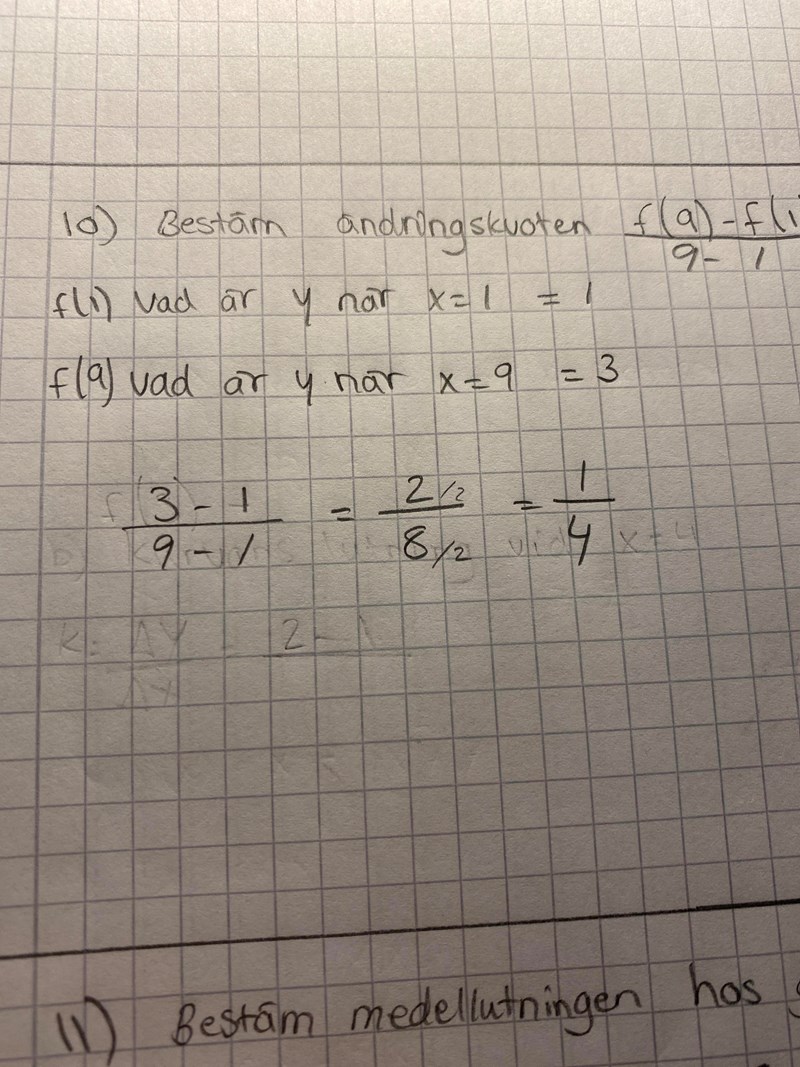 10) Bestäm ändringskvoten f(9)-f(1
9- 1
f(1) vad är y när x=1 = 1
f(9) vad är y när x=9 = 3
3 - 1 = 2/2 = 1
9 - 1 8/2 4
k= ΔY 2 - 1
ΔX
11) Bestäm medellutningen hos